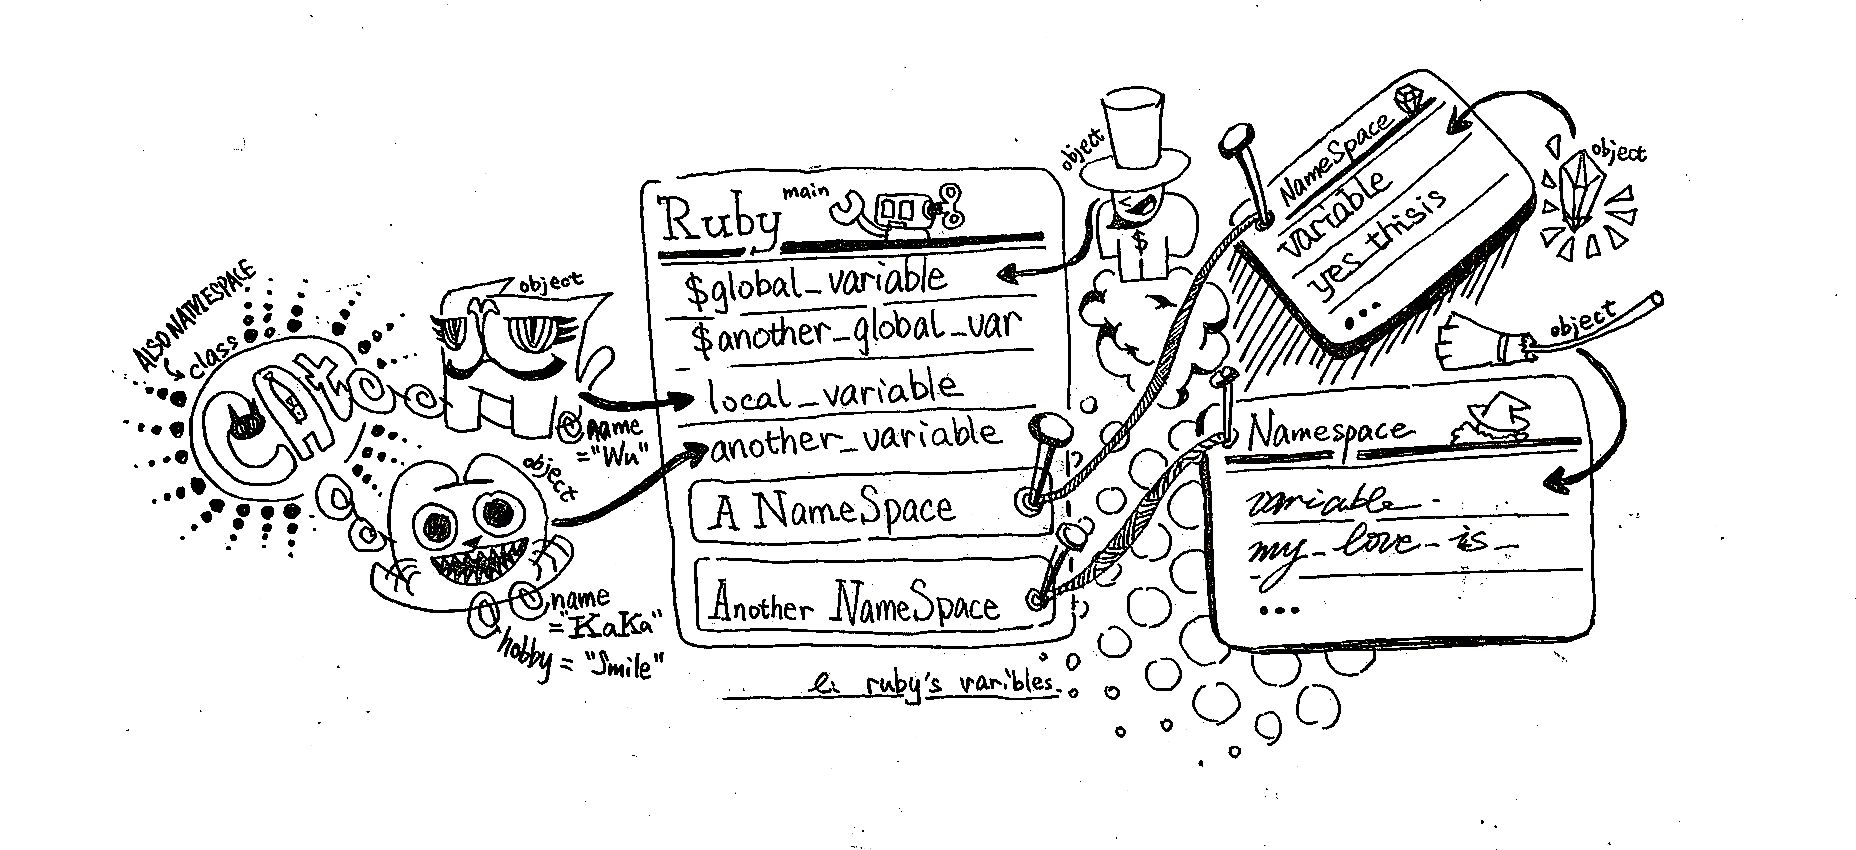 ALSO NAMESPACE
class
CAt
object
@name
="Wu"
object
@name
="KaKa"
@hobby = "Smile"
Ruby main
$global_variable
$another_global_var
local_variable
another_variable
A NameSpace
Another NameSpace
ruby's varibles.
object
$
NameSpace
variable
yes thisis
...
object
object
Namespace
variable
my_love_is_
...